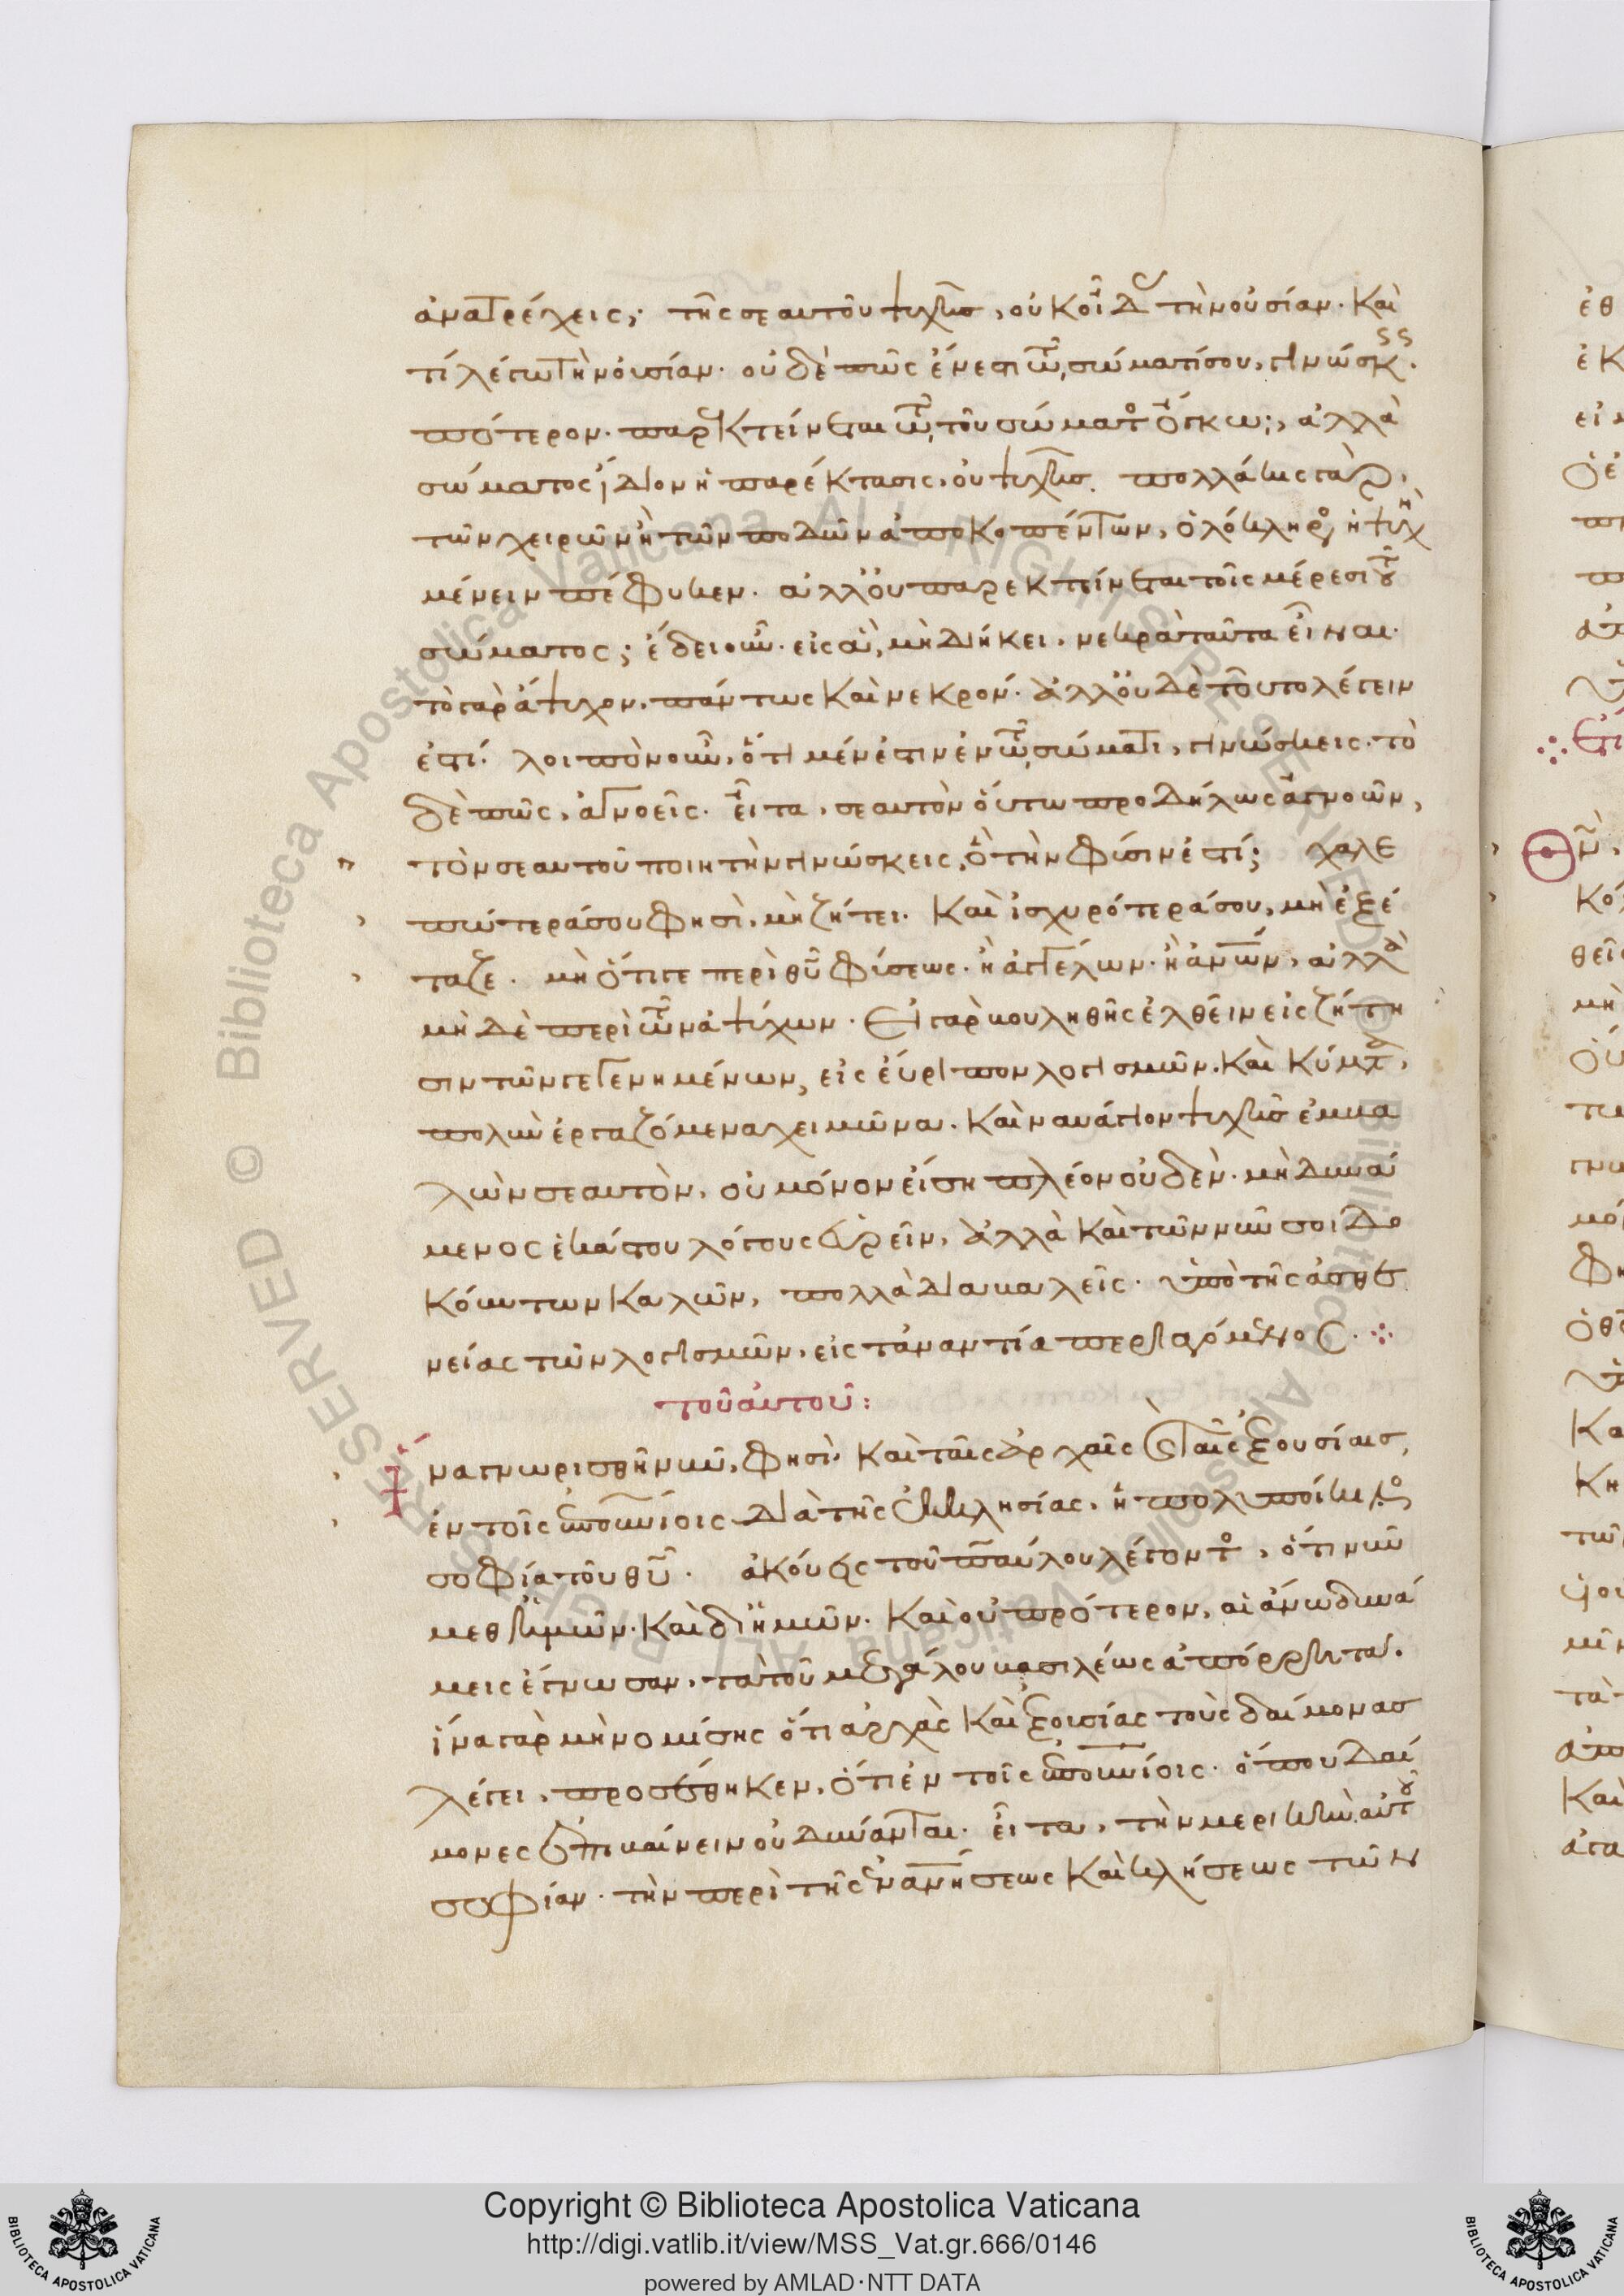 ἀνατρέχεις; τῆς σεαυτοῦ ψυχῆς, οὐκ οἶδας τὴν οὐσίαν. καὶ
τί λέγω τὴν οὐσίαν. οὐδὲ πῶς ἔνεστι τῶ σώματί σου, γινώσκεις.
πότερον. παρεκτείνεται τῶ τοῦ σώματος ὄγκω; ἀλλὰ
σώματος ἴδιον ἡ παρέκτασις, οὐ ψυχῆς. πολλάκις γὰρ,
τῶν χειρῶν ἢ τῶν ποδῶν ἀποκοπέντων, ὁλόκληρος ἡ ψυχὴ
μένειν πέφυκεν. ἀλλ' οὐ παρεκτείνεται τοῖς μέρεσι τοῦ
σώματος; ἔδει οὖν. εἰς ἃ, μὴ διήκει, νεκρὰ ταῦτα εἶναι.
τὸ γὰρ ἄψυχον, πάντως καὶ νεκρόν. ἀλλ' οὐδὲ τοῦτο λέγειν
ἐστί. λοιπὸν οὖν, ὅτι μέν ἐστιν ἐν τῶ σώματι, γινώσκεις. τὸ
δὲ πῶς, ἀγνοεῖς. εἶτα, σεαυτὸν οὕτω προδήλως ἀγνοῶν,
τὸν σεαυτοῦ ποιητὴν γινώσκεις, ὃ τὴν φύσιν ἐστί; χαλε
πώτερά σου φησὶ, μὴ ζήτει. καὶ ἰσχυρότερά σου, μὴ ἐξέ
ταζε. μὴ ὅτι γε περὶ θυ φύσεως. ἢ ἀγγέλων. ἢ ἀνων, ἀλλὰ
μὴ δὲ περὶ τῶν ἀψύχων. εἰ γὰρ βουληθῆς ἐλθεῖν εἰς ζήτη
σιν τῶν γεγενημένων, εἰς εὔριπον λογισμῶν. καὶ κύματα,
πολὺν ἐργαζόμενα χειμῶνα. καὶ ναυάγιον ψυχῆς ἐμβα
λὼν σεαυτὸν, οὐ μόνον εἴση πλέον οὐδὲν. μὴ δυνά
μενος ἑκάστου λόγους εὑρεῖν, ἀλλὰ καὶ τῶν νῦν σοι δο
κούντων καλῶν, πολλὰ διαβαλεῖς. ὑπὸ τῆς ἀσθε
νείας τῶν λογισμῶν, εἰς τἀναντία περιαγόμενος.
τοῦ αὐτοῦ:
Ἵνα γνωρισθῆ νῦν, φησὶ. καὶ ταῖς ἀρχαῖς καὶ ταῖς ἐξουσίαις,
ἐν τοῖς ἐπουνίοις διὰ τῆς ἐκκλησίας, ἡ πολυποίκιλος
σοφία τοῦ θυ. ἀκούεις τοῦ παύλου λέγοντος, ὅτι νῦν
μεθ' ἡμῶν. καὶ δι' ἡμῶν. καὶ οὐ πρότερον, αἱ ἄνω δυνά
μεις ἔγνωσαν, τὰ τοῦ μεγάλου βασιλέως ἀπόρρητα.
ἵνα γὰρ μὴ νομίσης ὅτι ἀρχὰς καὶ ἐξουσίας τοὺς δαίμονας
λέγει, προστέθηκεν, ὅτι ἐν τοῖς ἐπουνίοις. ὅπου δαί
μονες ἐπιβαίνειν οὐ δύνανται. εἶτα, τὴν μερικὴν αὐτοῦ
σοφίαν. τὴν περὶ τῆς ἐνανήσεως καὶ κλήσεως τῶν
Copyright © Biblioteca Apostolica Vaticana
http://digi.vatlib.it/view/MSS_Vat.gr.666/0146
powered by AMLAD·NTT DATA